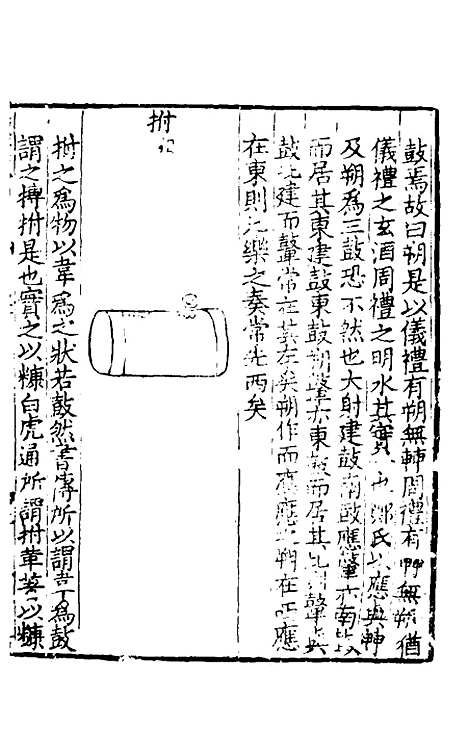 鼓焉故曰朔是以儀禮有朔無朄周禮有朄無朔猶
儀禮之玄酒周禮之明水其實一也鄭氏以應與朄
及朔為三鼓恐不然也大射建鼓南鼓應鼙亦南鼓
而居其東建鼓東鼓朔鼙亦東鼓而居其北則鼙與
鼓比建而鼙常在其左矣朔作而應應之朔在西應
在東則凡樂之奏常先西矣
拊
拊之為物以韋為之狀若鼓然書傳所以謂為鼓
謂之搏拊是也實之以糠白虎通所謂拊革以糠